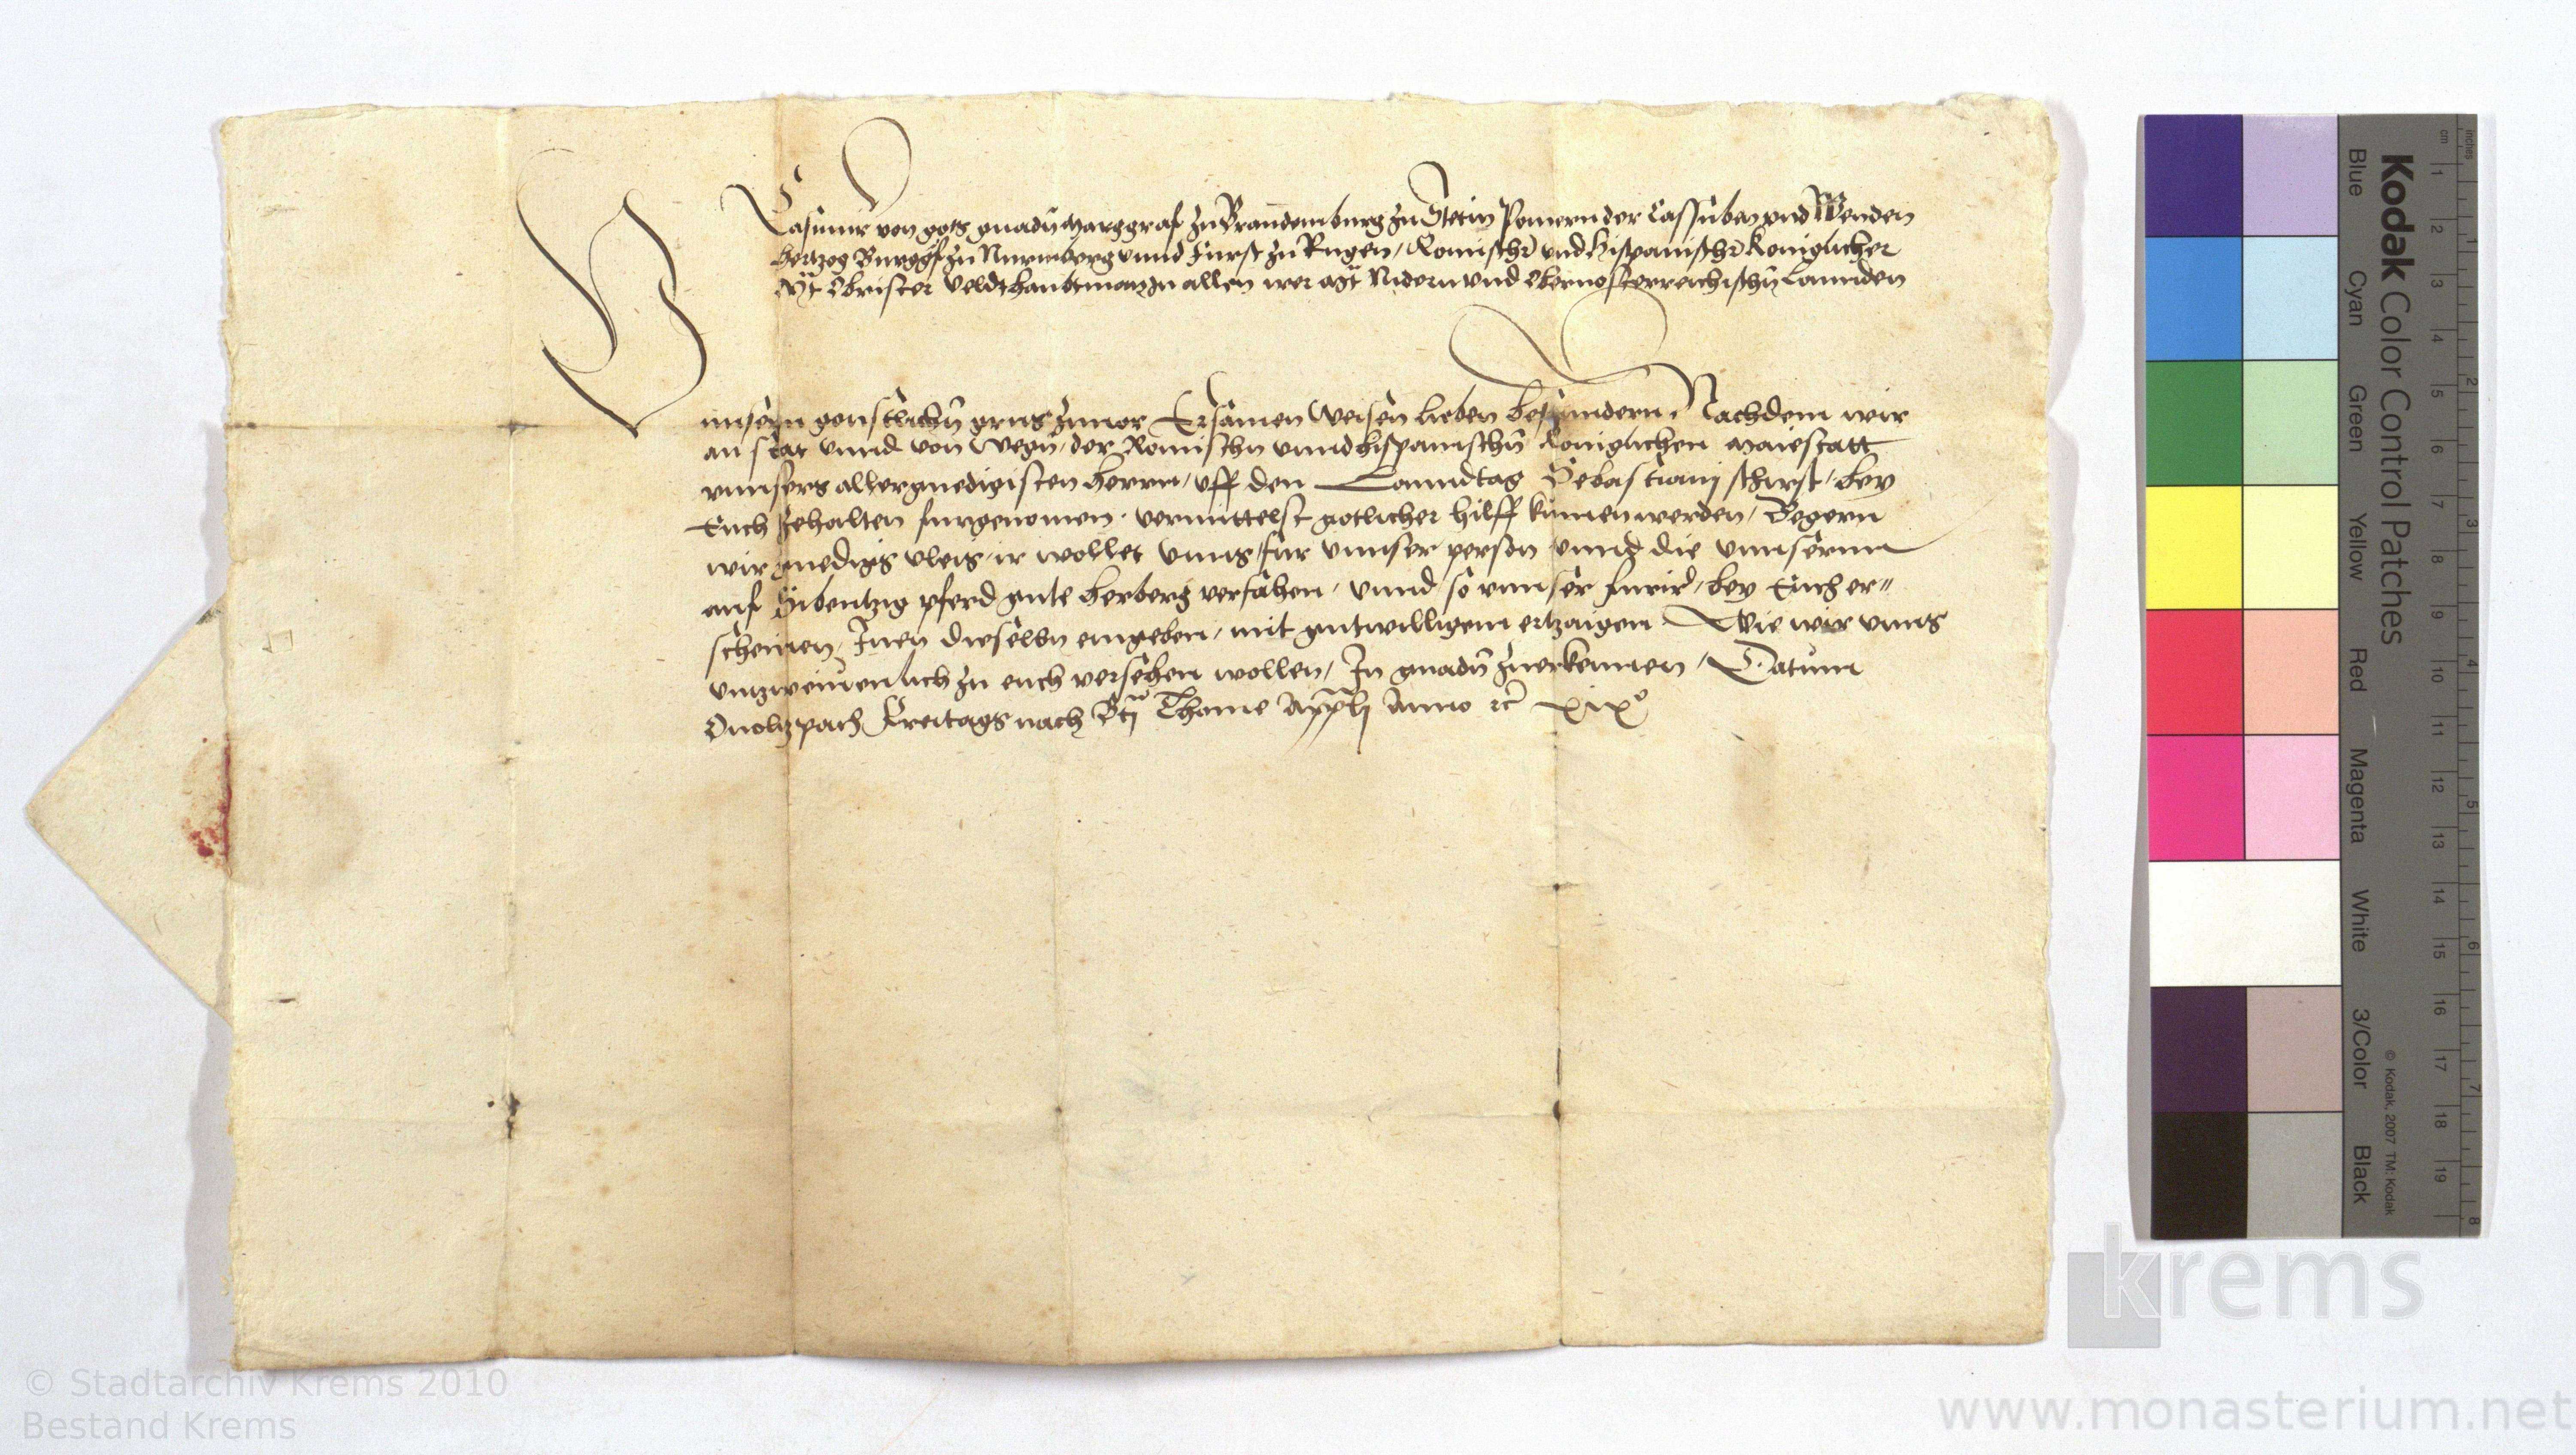 Casimir von gots gnadn̄ Marggraf zu Branndemburg zu Stetin Pomern der Cassuben vnd Wenden
Hertzog Burggf zu Nurmberg vnnd Furst zu Rugen / Romischr vnd Hispanischr Koniglicher
Mt Obrister Veldthaubtman zu allen irer Mt Nidern vnd Obernosterreichischn̄ Lannden
Vnnsern gonstlichn̄ grus zuuor Ersamen Weisen lieben besundern / Nachdem wir
an stat vnnd von wegn̄ / der Romischn vnnd hispanischn̄ Koniglichen Maiestatt
vnnsers allergnedigisten herrn / vff den Lanndtag Sebastianj schirst / bey
Euch zehalten furgenomen . vermittelst gotlicher hilff kumen werden / Begern
wir gnedigs vleis / ir wollet vnns / fur vnnser person vnnd die vnnsernn
auf Sibentzig pferd gute herberg versehen / vnnd so vnnser furir / bey Euch er=
scheinen / Inen dieselbn eingeben / mit gutwilligem ertzaigen Wie wir vnns
vnzweiuenlich zu euch versehen wollen / In gnadn̄ zuerkennen / Datum
Onoltzpach Freitags nach Btj Thome Appli Anno rc xixo
Kodak Color Control Patches
Blue Cyan Green Yellow Red Magenta White 3/Color Black
© Kodak, 2007 TM: Kodak
cm 1 2 3 4 5 6 7 8 9 10 11 12 13 14 15 16 17 18 19
inches 1 2 3 4 5 6 7 8
krems
© Stadtarchiv Krems 2010
Bestand Krems
www.monasterium.net